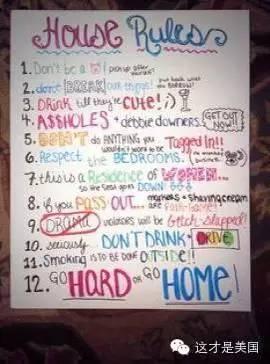 House Rules
1. Don't be a pick up after yourself!
2. don't BREAK our things! put back what you BORROW!
3. DRink till they're cute! ;)
4. A$$HOLES + debbie downers... GET OUT NOW!!
5. DON'T do ANYTHING you wouldn't want to be Tagged In!!
6. Respect the BEDROOMS.
7. this is a Residence of WOMEN... so the seat goes DOWN
8. if you PASS OUT... markers + shaving cream are FAIR-Game!
9. DRAMA violators will be bitch-slapped!
10. seriously DON'T DRINK + DRIVE
11. Smoking is TO BE DONE OUTSIDE!!
12. GO HARD or GO HOME!
这才是美国